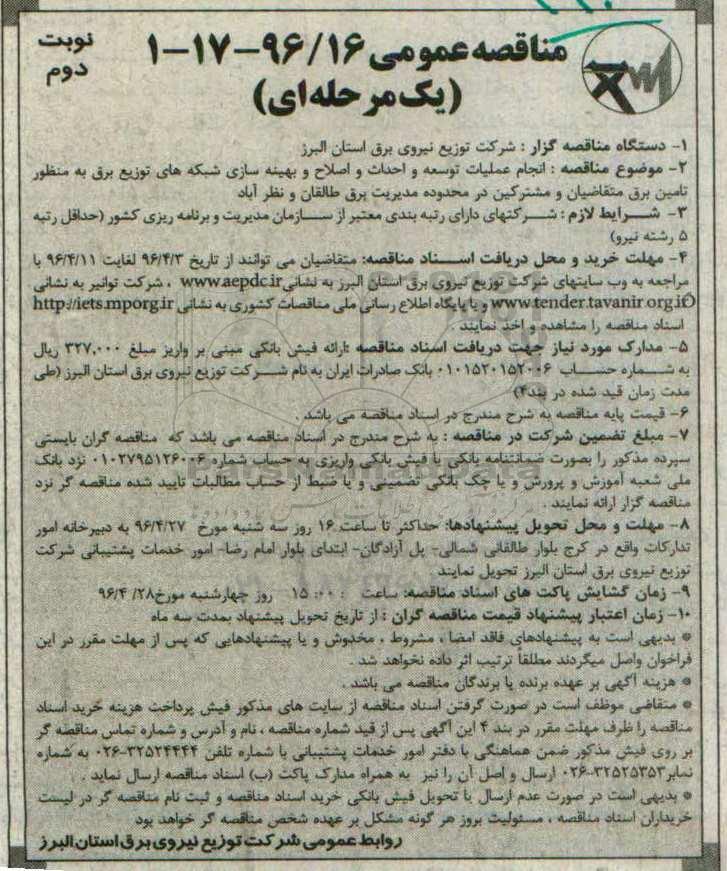 مناقصه عمومی ۹۶/۱۶-۱۷-۱
(یک مرحله ای)
نوبت
دوم
۱- دستگاه مناقصه گزار : شرکت توزیع نیروی برق استان البرز
۲- موضوع مناقصه : انجام عملیات توسعه و احداث و اصلاح و بهینه سازی شبکه های توزیع برق به منظور
تامین برق متقاضیان و مشترکین در محدوده مدیریت برق طالقان و نظر آباد
۳- شرایط لازم : شرکتهای دارای رتبه بندی معتبر از سازمان مدیریت و برنامه ریزی کشور (حداقل رتبه
۵ رشته نیرو)
۴- مهلت خرید و محل دریافت اسناد مناقصه: متقاضیان می توانند از تاریخ ۹۶/۴/۳ لغایت ۹۶/۴/۱۱ با
مراجعه به وب سایتهای شرکت توزیع نیروی برق استان البرز به نشانی www.aepdc.ir ، شرکت توانیر به نشانی
www.tender.tavanir.org.ir و یا پایگاه اطلاع رسانی ملی مناقصات کشوری به نشانی http://iets.mporg.ir
اسناد مناقصه را مشاهده و اخذ نمایند .
۵- مدارک مورد نیاز جهت دریافت اسناد مناقصه :ارائه فیش بانکی مبنی بر واریز مبلغ ۳۲۷,۰۰۰ ریال
به شماره حساب ۰۱۰۱۵۲۰۱۵۲۰۰۶ بانک صادرات ایران به نام شرکت توزیع نیروی برق استان البرز (طی
مدت زمان قید شده در بند۴)
۶- قیمت پایه مناقصه به شرح مندرج در اسناد مناقصه می باشد .
۷- مبلغ تضمین شرکت در مناقصه : به شرح مندرج در اسناد مناقصه می باشد که مناقصه گران بایستی
سپرده مذکور را بصورت ضمانتنامه بانکی یا فیش بانکی واریزی به حساب شماره ۰۱۰۲۷۹۵۱۲۶۰۰۶ نزد بانک
ملی شعبه آموزش و پرورش و یا چک بانکی تضمینی و یا ضبط از حساب مطالبات تایید شده مناقصه گر نزد
مناقصه گزار ارائه نمایند .
۸- مهلت و محل تحویل پیشنهادها: حداکثر تا ساعت ۱۶ روز سه شنبه مورخ ۹۶/۴/۲۷ به دبیرخانه امور
تدارکات واقع در کرج بلوار طالقانی شمالی- پل آزادگان- ابتدای بلوار امام رضا- امور خدمات پشتیبانی شرکت
توزیع نیروی برق استان البرز تحویل نمایند
۹- زمان گشایش پاکت های اسناد مناقصه: ساعت ۱۵:۰۰ روز چهارشنبه مورخ۹۶/۴/۲۸
۱۰- زمان اعتبار پیشنهاد قیمت مناقصه گران : از تاریخ تحویل پیشنهاد بمدت سه ماه
* بدیهی است به پیشنهادهای فاقد امضا ، مشروط ، مخدوش و یا پیشنهادهایی که پس از مهلت مقرر در این
فراخوان واصل میگردند مطلقاً ترتیب اثر داده نخواهد شد .
* هزینه آگهی بر عهده برنده یا برندگان مناقصه می باشد .
* متقاضی موظف است در صورت گرفتن اسناد مناقصه از سایت های مذکور فیش پرداخت هزینه خرید اسناد
مناقصه را ظرف مهلت مقرر در بند ۴ این آگهی پس از قید شماره مناقصه ، نام و آدرس و شماره تماس مناقصه گر
بر روی فیش مذکور ضمن هماهنگی با دفتر امور خدمات پشتیبانی با شماره تلفن ۳۲۵۲۴۴۴۴-۰۲۶ به شماره
نمابر۳۲۵۲۵۳۵۳-۰۲۶ ارسال و اصل آن را نیز به همراه مدارک پاکت (ب) اسناد مناقصه ارسال نماید .
* بدیهی است در صورت عدم ارسال یا تحویل فیش بانکی خرید اسناد مناقصه و ثبت نام مناقصه گر در لیست
خریداران اسناد مناقصه ، مسئولیت بروز هر گونه مشکل بر عهده شخص مناقصه گر خواهد بود
روابط عمومی شرکت توزیع نیروی برق استان البرز